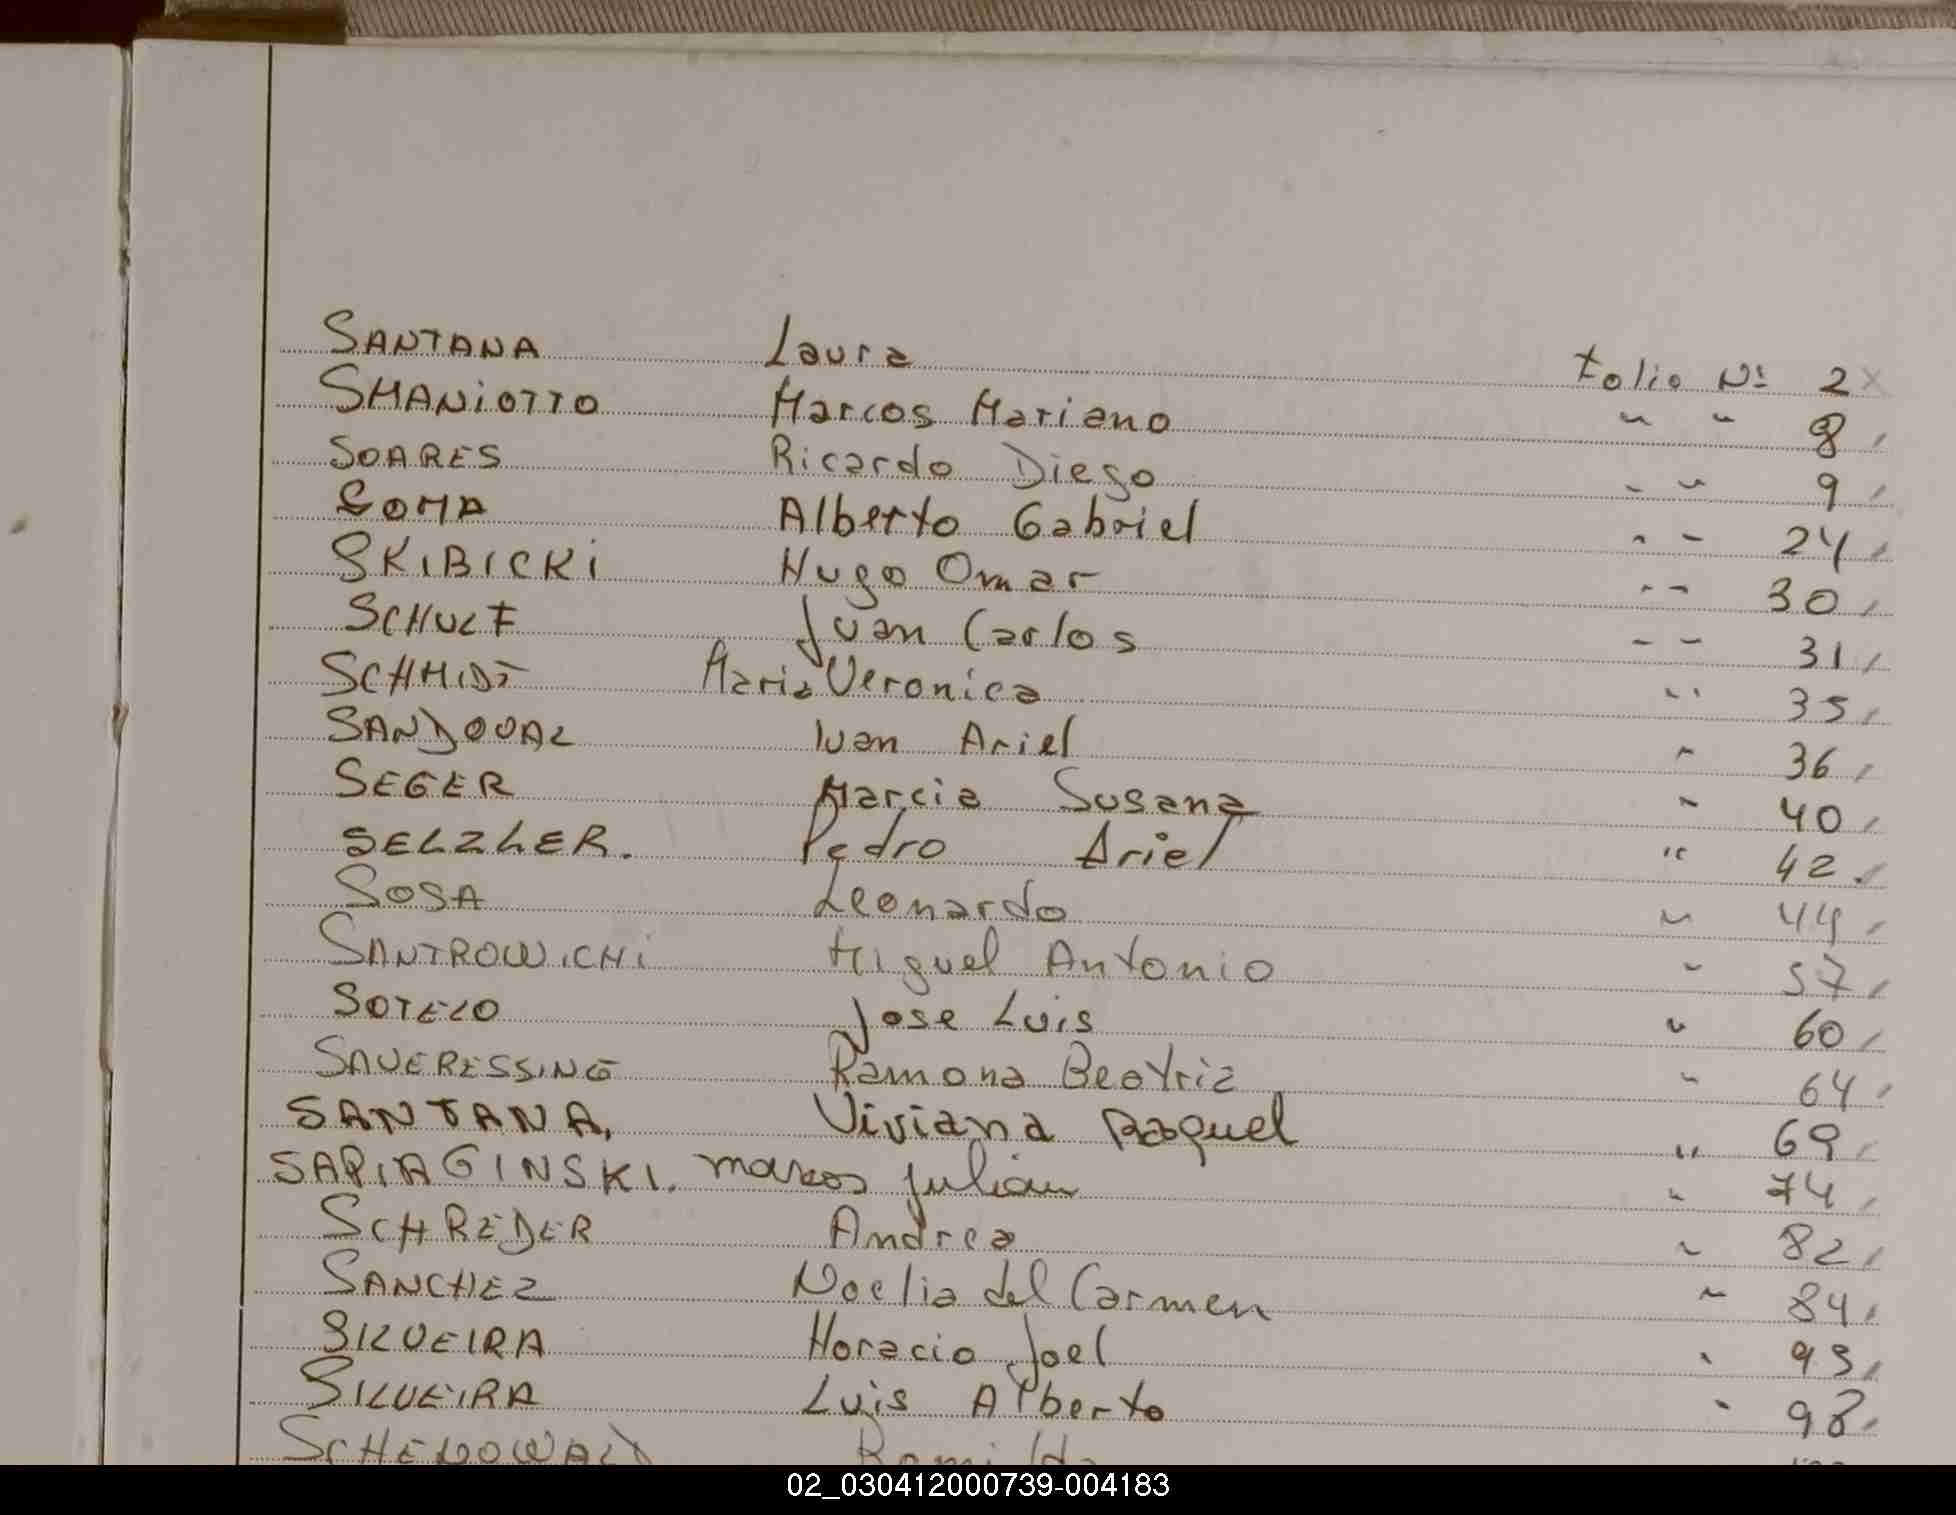 SANTANA Laura Folio Nº 2
SMANiOTTO Marcos Mariano " " 8
SOARES Ricardo Diego " " 9
SOMA Alberto Gabriel " " 24
SKIBICKi Hugo Omar " " 30
SCHULT Juan Carlos " " 31
SCHMIDT Maria Veronica " 35
SANDOVAL Ivan Ariel " 36
SEGER Marcia Susana " 40
SELZLER. Pedro Ariel " 42
SOSA Leonardo " 44
SANTROWICHi Miguel Antonio " 57
SOTELO Jose Luis " 60
SAUERESSING Ramona Beatriz " 64
SANTANA, Viviana Raquel " 69
SAPIAGINSKI. marcos julian " 74
SCHREDER Andrea " 82
SANCHEZ Noelia del Carmen " 84
SILVEIRA Horacio Joel " 93
SILVEIRA Luis Alberto " 98
02_030412000739-004183